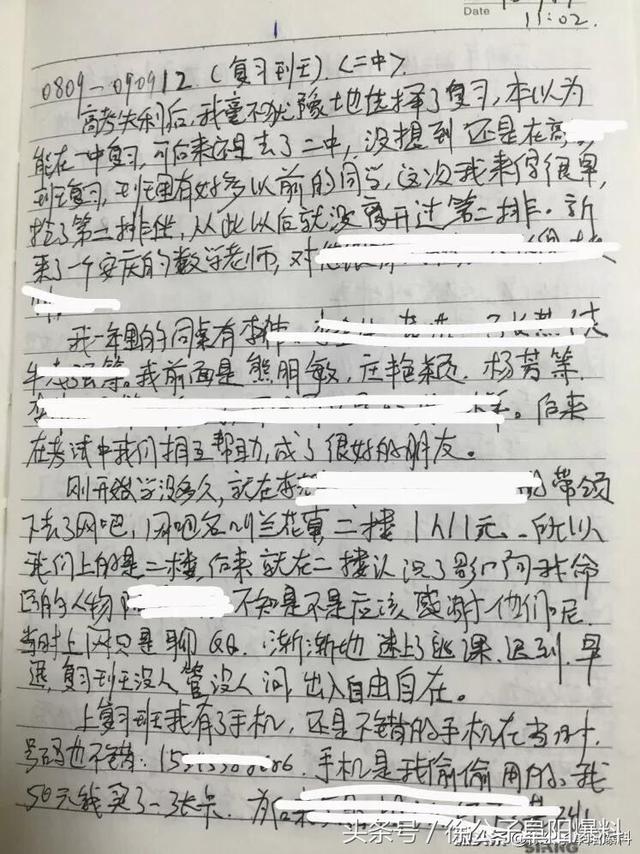 Date
11:02.
0809-090912.(复习班).<二中>.
高考失利后,我毫不犹豫地选择了复习,本以为
能在一中复习,可后来还是去了二中,没想到还是在高
班复习,班里有好多以前的同学,这次我来得很早,
抢了第二排坐,从此以后就没离开过第二排。新
来了一个安庆的数学老师,对他
我一年里的同桌有李
等。我前面是熊明敏,庄艳颖,杨芳等,
后来
在考试中我们相互帮助,成了很好的朋友。
刚开始学没多久,就在李 的带领
下去了网吧,网吧名叫兰花草,二楼1人1元、所以
我们上的是二楼,后来就在二楼认识了影响我命
运的人物 不知是不是应该感谢他们呢
当时上网只是聊QQ.渐渐地迷上了逃课、迟到、早
退,复习班没人管没人问,出入自由自在。
上复习班我有了手机,还是不错的手机在当时,
号码也不错:15 手机是我偷偷用的、我
50元钱买了一张卡.为
头条号/徐公子阜阳爆料